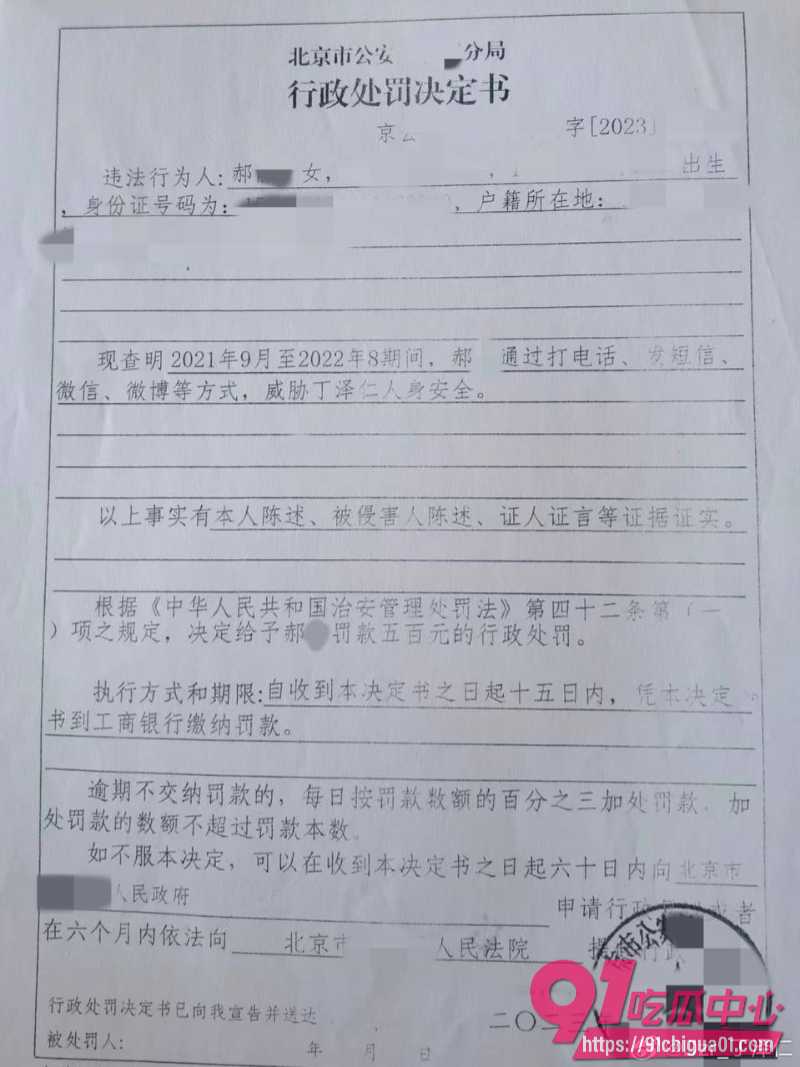 北京市公安 分局
行政处罚决定书
京公 字[2023]
违法行为人:郝 女, , 出生
,身份证号码为: ,户籍所在地:
现查明2021年9月至2022年8期间,郝 通过打电话、发短信、
微信、微博等方式,威胁丁泽仁人身安全。
以上事实有本人陈述、被侵害人陈述、证人证言等证据证实。
根据《中华人民共和国治安管理处罚法》第四十二条第(一
)项之规定,决定给予郝 罚款五百元的行政处罚。
执行方式和期限:自收到本决定书之日起十五日内,凭本决定
书到工商银行缴纳罚款。
逾期不交纳罚款的,每日按罚款数额的百分之三加处罚款,加
处罚款的数额不超过罚款本数。
如不服本决定,可以在收到本决定书之日起六十日内向北京市
人民政府
申请行政 或者
在六个月内依法向 北京市 人民法院 提 行政
市公安
行政处罚决定书已向我宣告并送达
二〇二三年
被处罚人:
年 月 日
91吃瓜中心
https://91chigua01.com